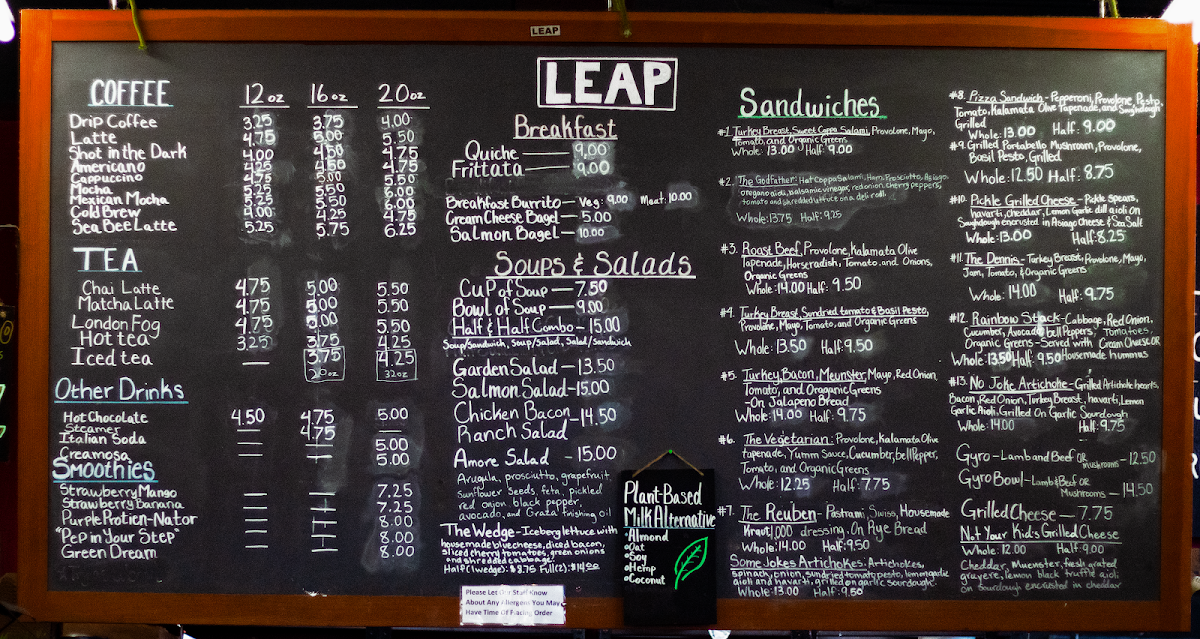 LEAP
LEAP
COFFEE 12 oz 16 oz 20 oz
Drip Coffee 3.25 3.75 4.00
Latte 4.75 5.00 5.50
Shot in the Dark 4.00 4.50 4.75
Americano 4.25 4.50 4.75
Cappuccino 4.75 5.00 5.50
Mocha 5.25 5.50 6.00
Mexican Mocha 5.25 5.50 6.00
Cold Brew 4.00 4.25 4.75
Sea Bee Latte 5.25 5.75 6.25
TEA
Chai Latte 4.75 5.00 5.50
Matcha Latte 4.75 5.00 5.50
London Fog 4.75 5.00 5.50
Hot tea 3.25 3.75 4.25
Iced tea — 3.75 4.25
20oz 32oz
Other Drinks
Hot Chocolate 4.50 4.75 5.00
Steamer — 4.75 —
Italian Soda — — 5.00
Creamosa — — 5.00
Smoothies
Strawberry Mango — — 7.25
Strawberry Banana — — 7.25
Purple Protien-Nator — — 8.00
"Pep in Your Step" — — 8.00
Green Dream — — 8.00
Breakfast
Quiche — 9.00
Frittata — 9.00
Breakfast Burrito — Veg: 9.00 Meat: 10.00
Cream Cheese Bagel — 5.00
Salmon Bagel — 10.00
Soups & Salads
Cup of Soup — 7.50
Bowl of Soup — 9.00
Half & Half Combo — 15.00
Soup/Sandwich, Soup/Salad, Salad/Sandwich
Garden Salad — 13.50
Salmon Salad — 15.00
Chicken Bacon — 14.50
Ranch Salad
Amore Salad — 15.00
Arugula, prosciutto, grapefruit,
sunflower seeds, feta, pickled
red onion black pepper,
avocado, and Graza finishing oil
The Wedge - Iceberg lettuce with
housemade blue cheese, diced bacon,
sliced cherry tomatoes, green onions
and shredded cabbage
Half (wedge): $8.75 Full (2): $14.00
Please Let Our Staff Know
About Any Allergens You May
Have Time Of Placing Order
Plant-Based
Milk Alternative
Almond
Oat
Soy
Hemp
Coconut
Sandwiches
#1. Turkey Breast, Sweet Coppa Salami, Provolone, Mayo,
Tomato, and Organic Greens
Whole: 13.00 Half: 9.00
#2. The Godfather: Hot Coppa Salami, Ham, Prosciutto, Asiago,
oregano aioli, balsamic vinegar, red onion, cherry peppers,
tomato and shredded lettuce on a deli roll.
Whole: 13.75 Half: 9.25
#3. Roast Beef, Provolone, Kalamata Olive
Tapenade, Horseradish, Tomato, and Onions,
Organic Greens
Whole: 14.00 Half: 9.50
#4. Turkey Breast, Sundried tomato & Basil Pesto,
Provolone, Mayo, Tomato, and Organic Greens
Whole: 13.50 Half: 9.50
#5. Turkey, Bacon, Meunster, Mayo, Red Onion
Tomato, and Oraganic Greens
-On Jalapeno Bread
Whole: 14.00 Half: 9.75
#6. The Vegetarian: Provolone, Kalamata Olive
tapenade, Yumm Sauce, Cucumber, bell Pepper,
Tomato, and Organic Greens
Whole: 12.25 Half: 7.75
#7. The Reuben - Pastrami, Swiss, Housemade
Kraut, 1,000 dressing, On Rye Bread
Whole: 14.00 Half: 9.50
Some Jokes Artichokes: Artichokes,
spinach, onion, sundried tomato pesto, lemon garlic
aioli and havarti, grilled on garlic sourdough.
Whole: 13.00 Half: 9.50
#8. Pizza Sandwich - Pepperoni, Provolone, Pesto,
Tomato, Kalamata Olive Tapenade, and Sourdough
Grilled
Whole: 13.00 Half: 9.00
#9. Grilled Portabello Mushroom, Provolone,
Basil Pesto, Grilled
Whole: 12.50 Half: 8.75
#10. Pickle Grilled Cheese - Pickle spears,
havarti, cheddar, Lemon Garlic dill aioli On
Sourdough encrusted in Asiago Cheese & Sea Salt
Whole: 13.00 Half: 8.25
#11. The Dennis - Turkey Breast, Provolone, Mayo,
Jam, Tomato, & Organic Greens
Whole: 14.00 Half: 9.75
#12. Rainbow Stack - Cabbage, Red Onion,
Cucumber, Avocado, bell Peppers, Tomatoes,
Organic Greens - Served with Cream Cheese OR
Whole: 13.50 Half: 9.50 Housemade hummus
#13. No Joke Artichoke - Grilled Artichoke hearts,
Bacon, Red Onion, Turkey Breast, havarti, Lemon
Garlic Aioli, Grilled On Garlic Sourdough
Whole: 14.00 Half: 9.75
Gyro - Lamb and Beef OR mushrooms - 12.50
Gyro Bowl - Lamb & Beef OR
Mushrooms — 14.50
Grilled Cheese — 7.75
Not Your Kid's Grilled Cheese
Whole: 12.00 Half: 9.00
Cheddar, Muenster, fresh grated
gruyere, lemon black truffle aioli
on sourdough encrusted in cheddar